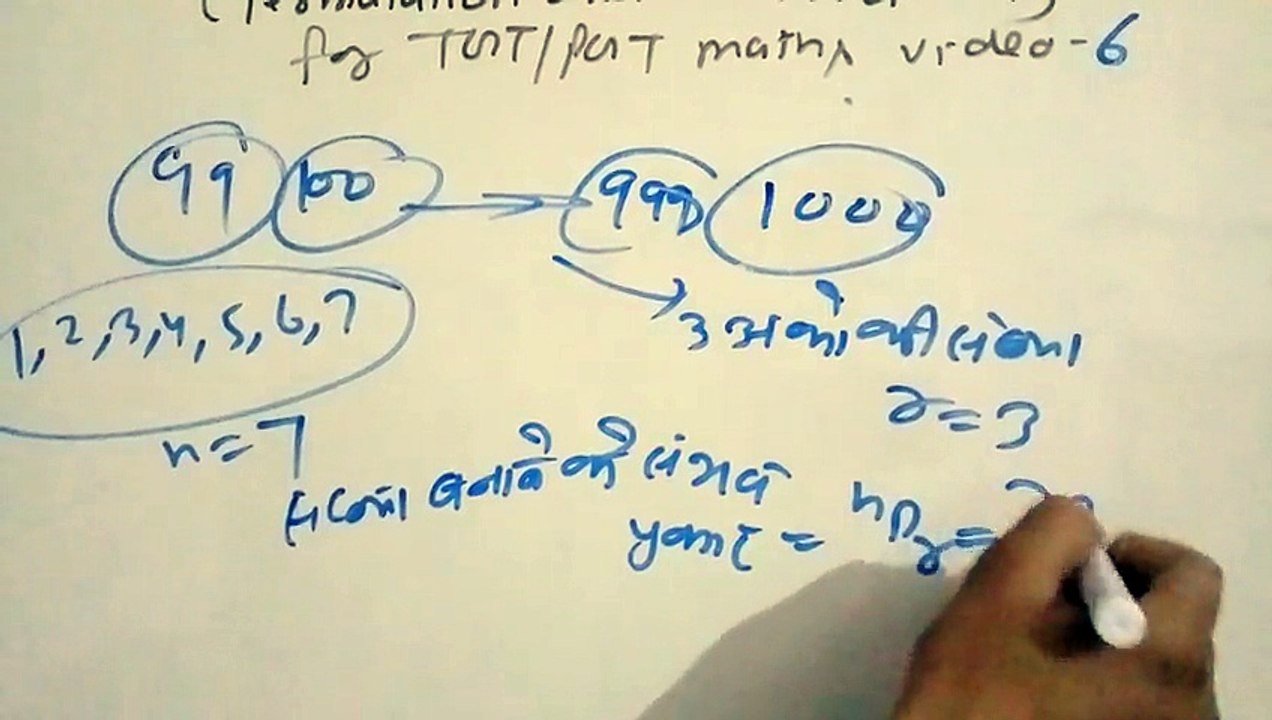 for TGT/PGT maths video-6
99 100 → 999 1000
1, 2, 3, 4, 5, 6, 7
3 अंको की संख्या
r = 3
n = 7
संख्या बनाने की संभव
प्रकार = nPr =